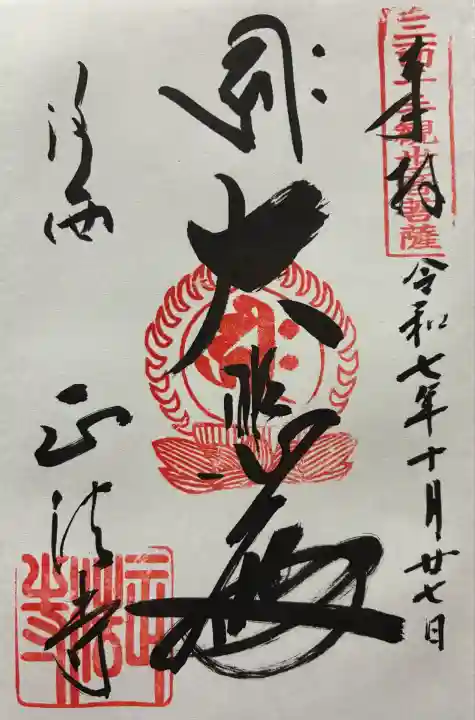 三面千手観世音菩薩
奉拝
令和七年十月廿七日
大悲殿
洛西
正法寺
正法寺